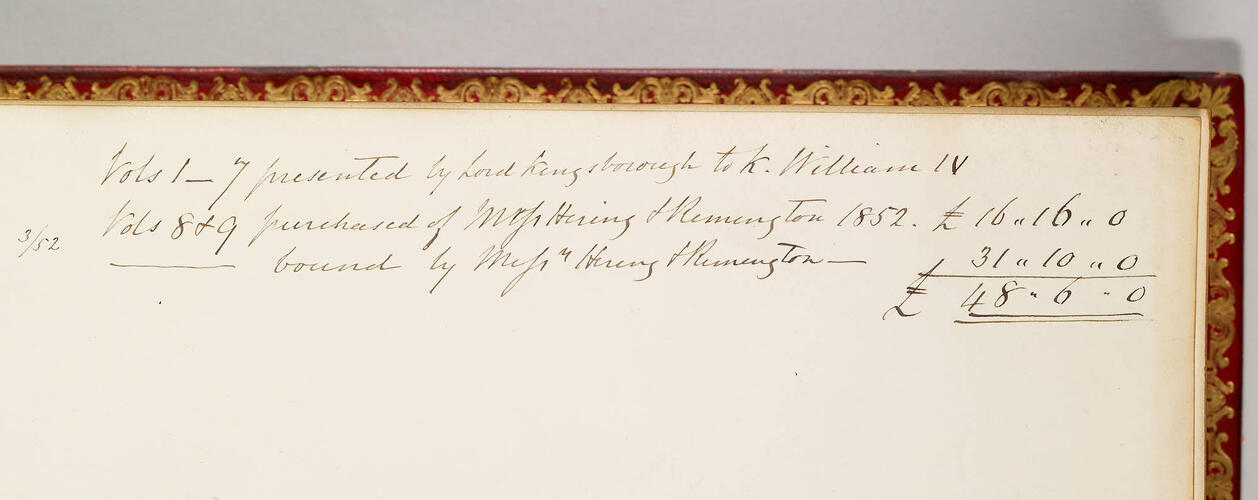 Vols 1 — 7 presented by Lord Kingsborough to K. William IV
3/52 Vols 8 & 9 purchased of Messrs Hering & Remington 1852. £ 16 " 16 " 0
——— bound by Messrs Hering & Remington — 31 " 10 " 0
£ 48 " 6 " 0